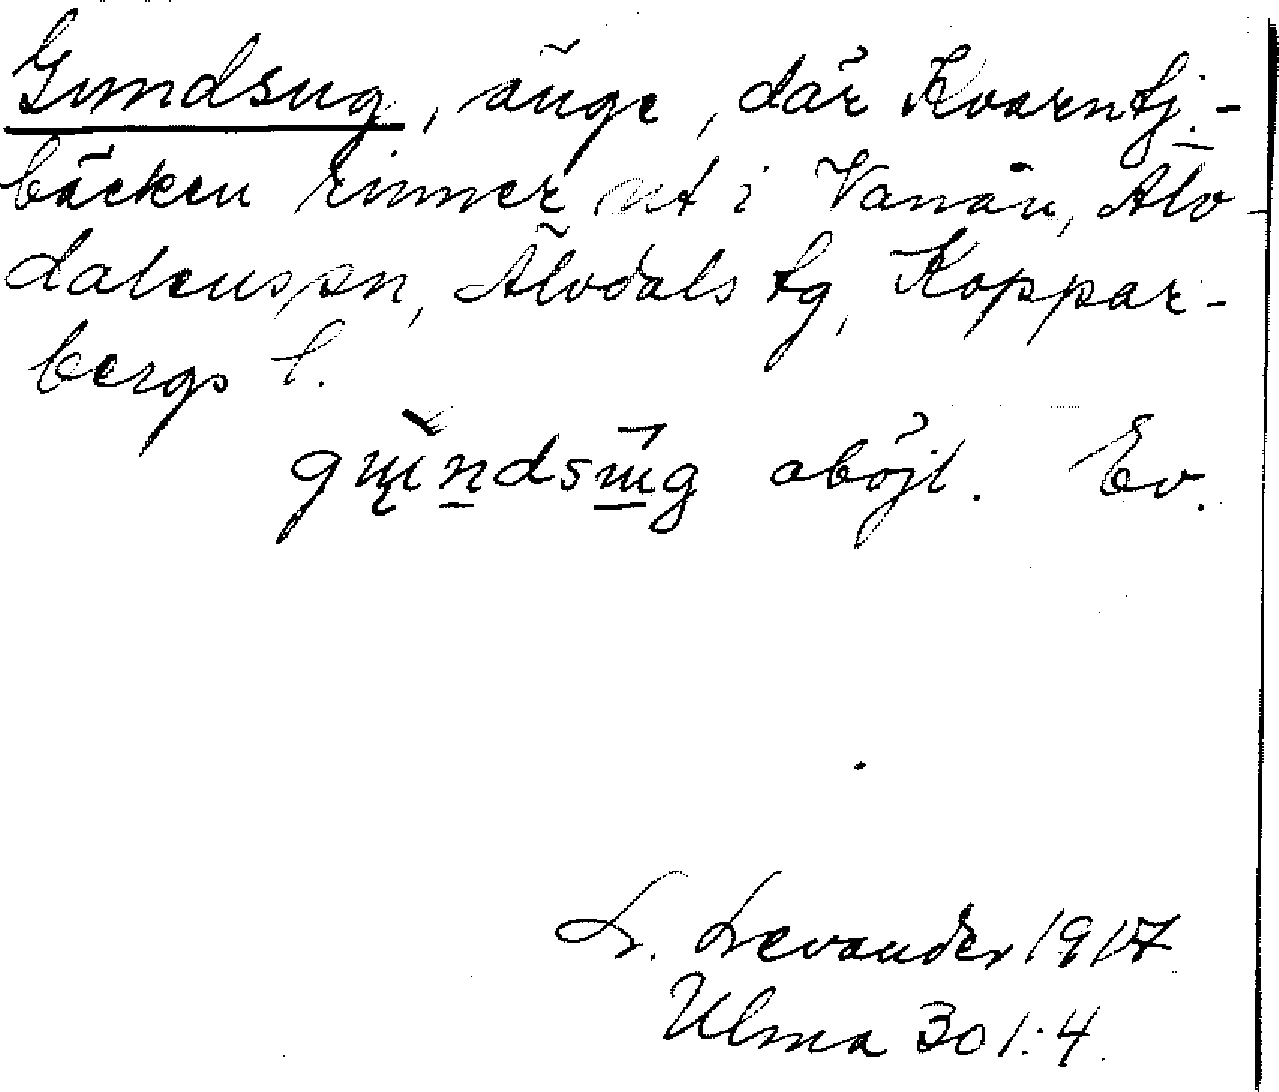 Gundsug, änge, där Kvarntj.-
bäcken rinner ut i Vanån, Älv-
dalens sn, Älvdals tg, Koppar-
bergs l.
gundsug oböjl. Ev.
L. Levander 1917
Ulma 301:4.